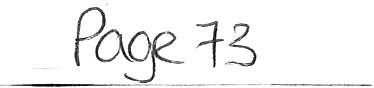 Page 73